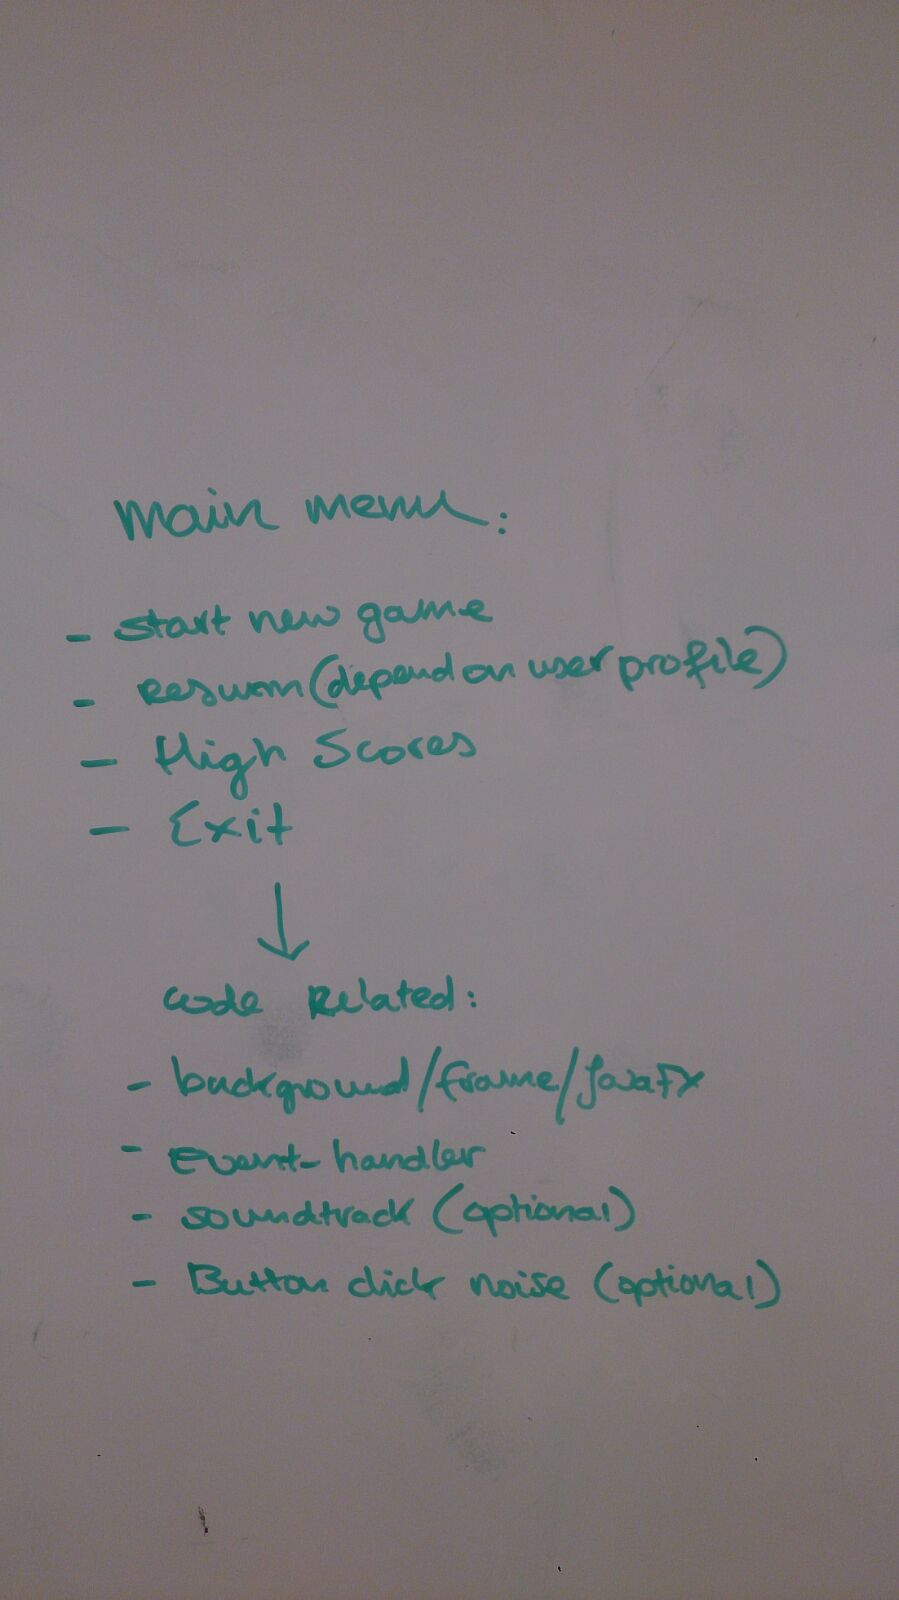 main menu:
- Start new game
- Resum (depend on user profile)
- High Scores
- Exit
↓
code Related:
- background/frame/JavaFX
- Event-handler
- soundtrack (optional)
- Button click noise (optional)